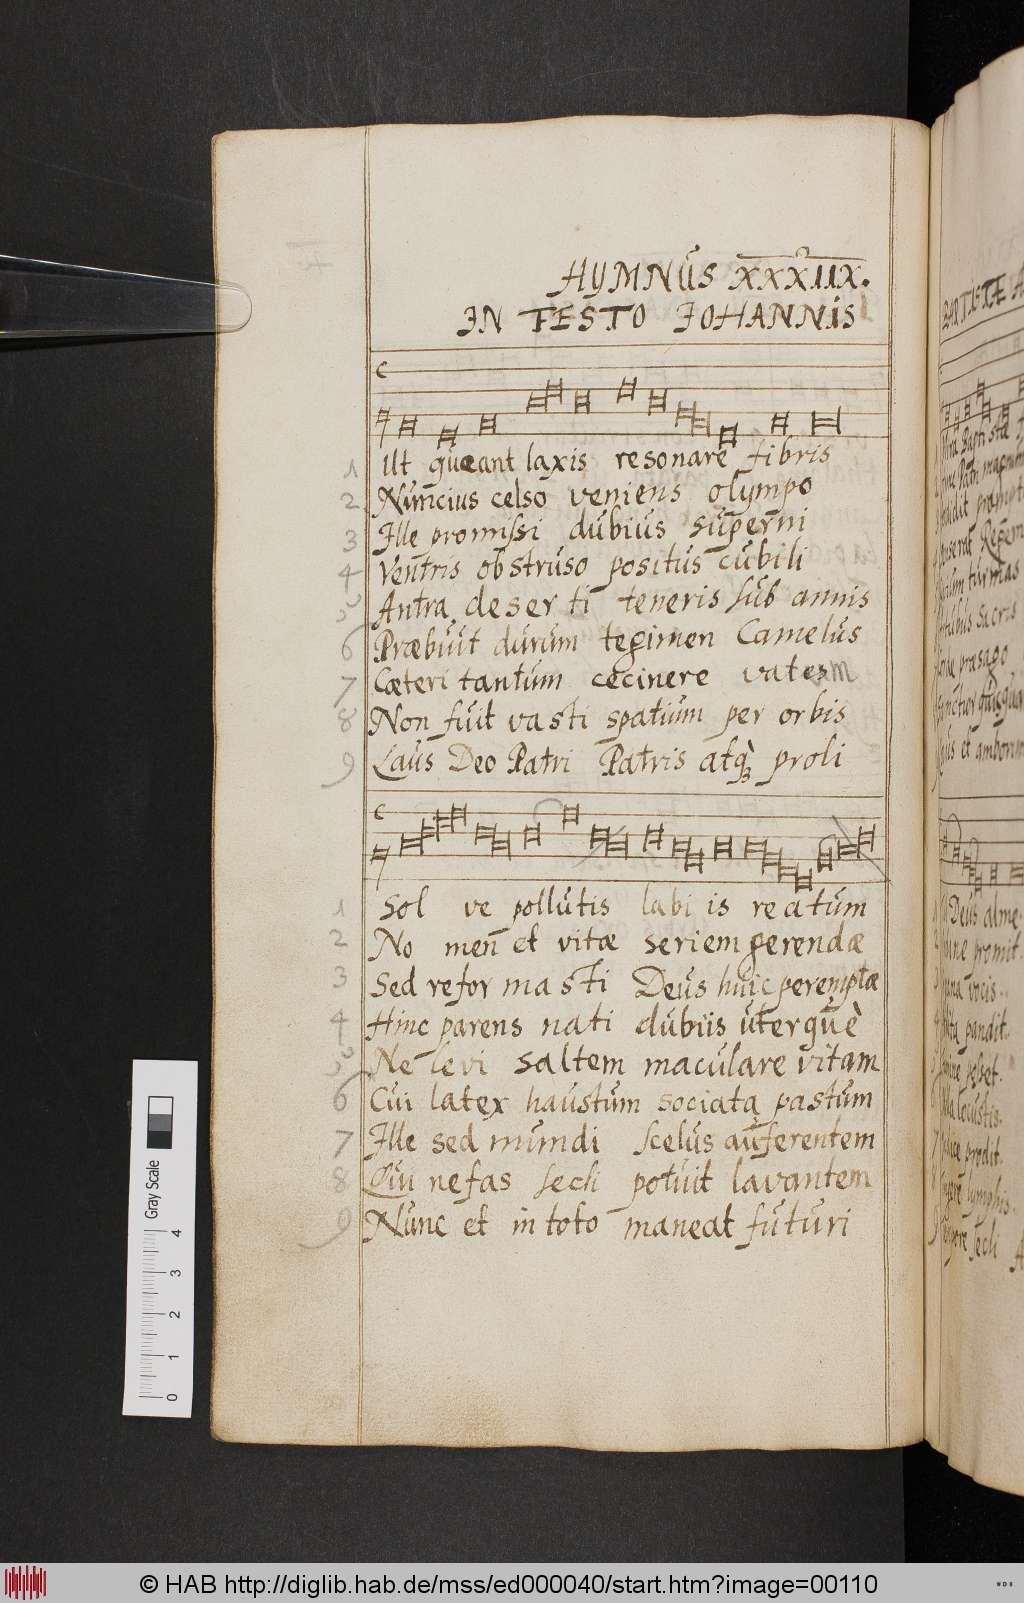 HYMNUS XXXIIX.
IN FESTO IOHANNIS
1 Ut queant laxis resonare fibris
2 Nuncius celso veniens olympo
3 Ille promissi dubius superni
4 Ventris obstruso positus cubili
5 Antra deserti teneris sub annis
6 Præbuit durum tegimen Camelus
7 Cæteri tantum cecinere vatem
8 Non fuit vasti spatium per orbis
9 Laus Deo Patri Patris atq; proli
1 Sol ve pollutis labi is reatum
2 No men et vitæ seriem gerendæ
3 Sed refor masti Deus huic peremptæ
4 Hinc parens nati dubiis uterquè
5 Ne levi saltem maculare vitam
6 Cui latex haustum sociata pastum
7 Ille sed mundi scelus auferentem
8 Qui nefas secli potuit lavantem
9 Nunc et in toto maneat futuri
Gray Scale
0 1 2 3 4
© HAB http://diglib.hab.de/mss/ed000040/start.htm?image=00110